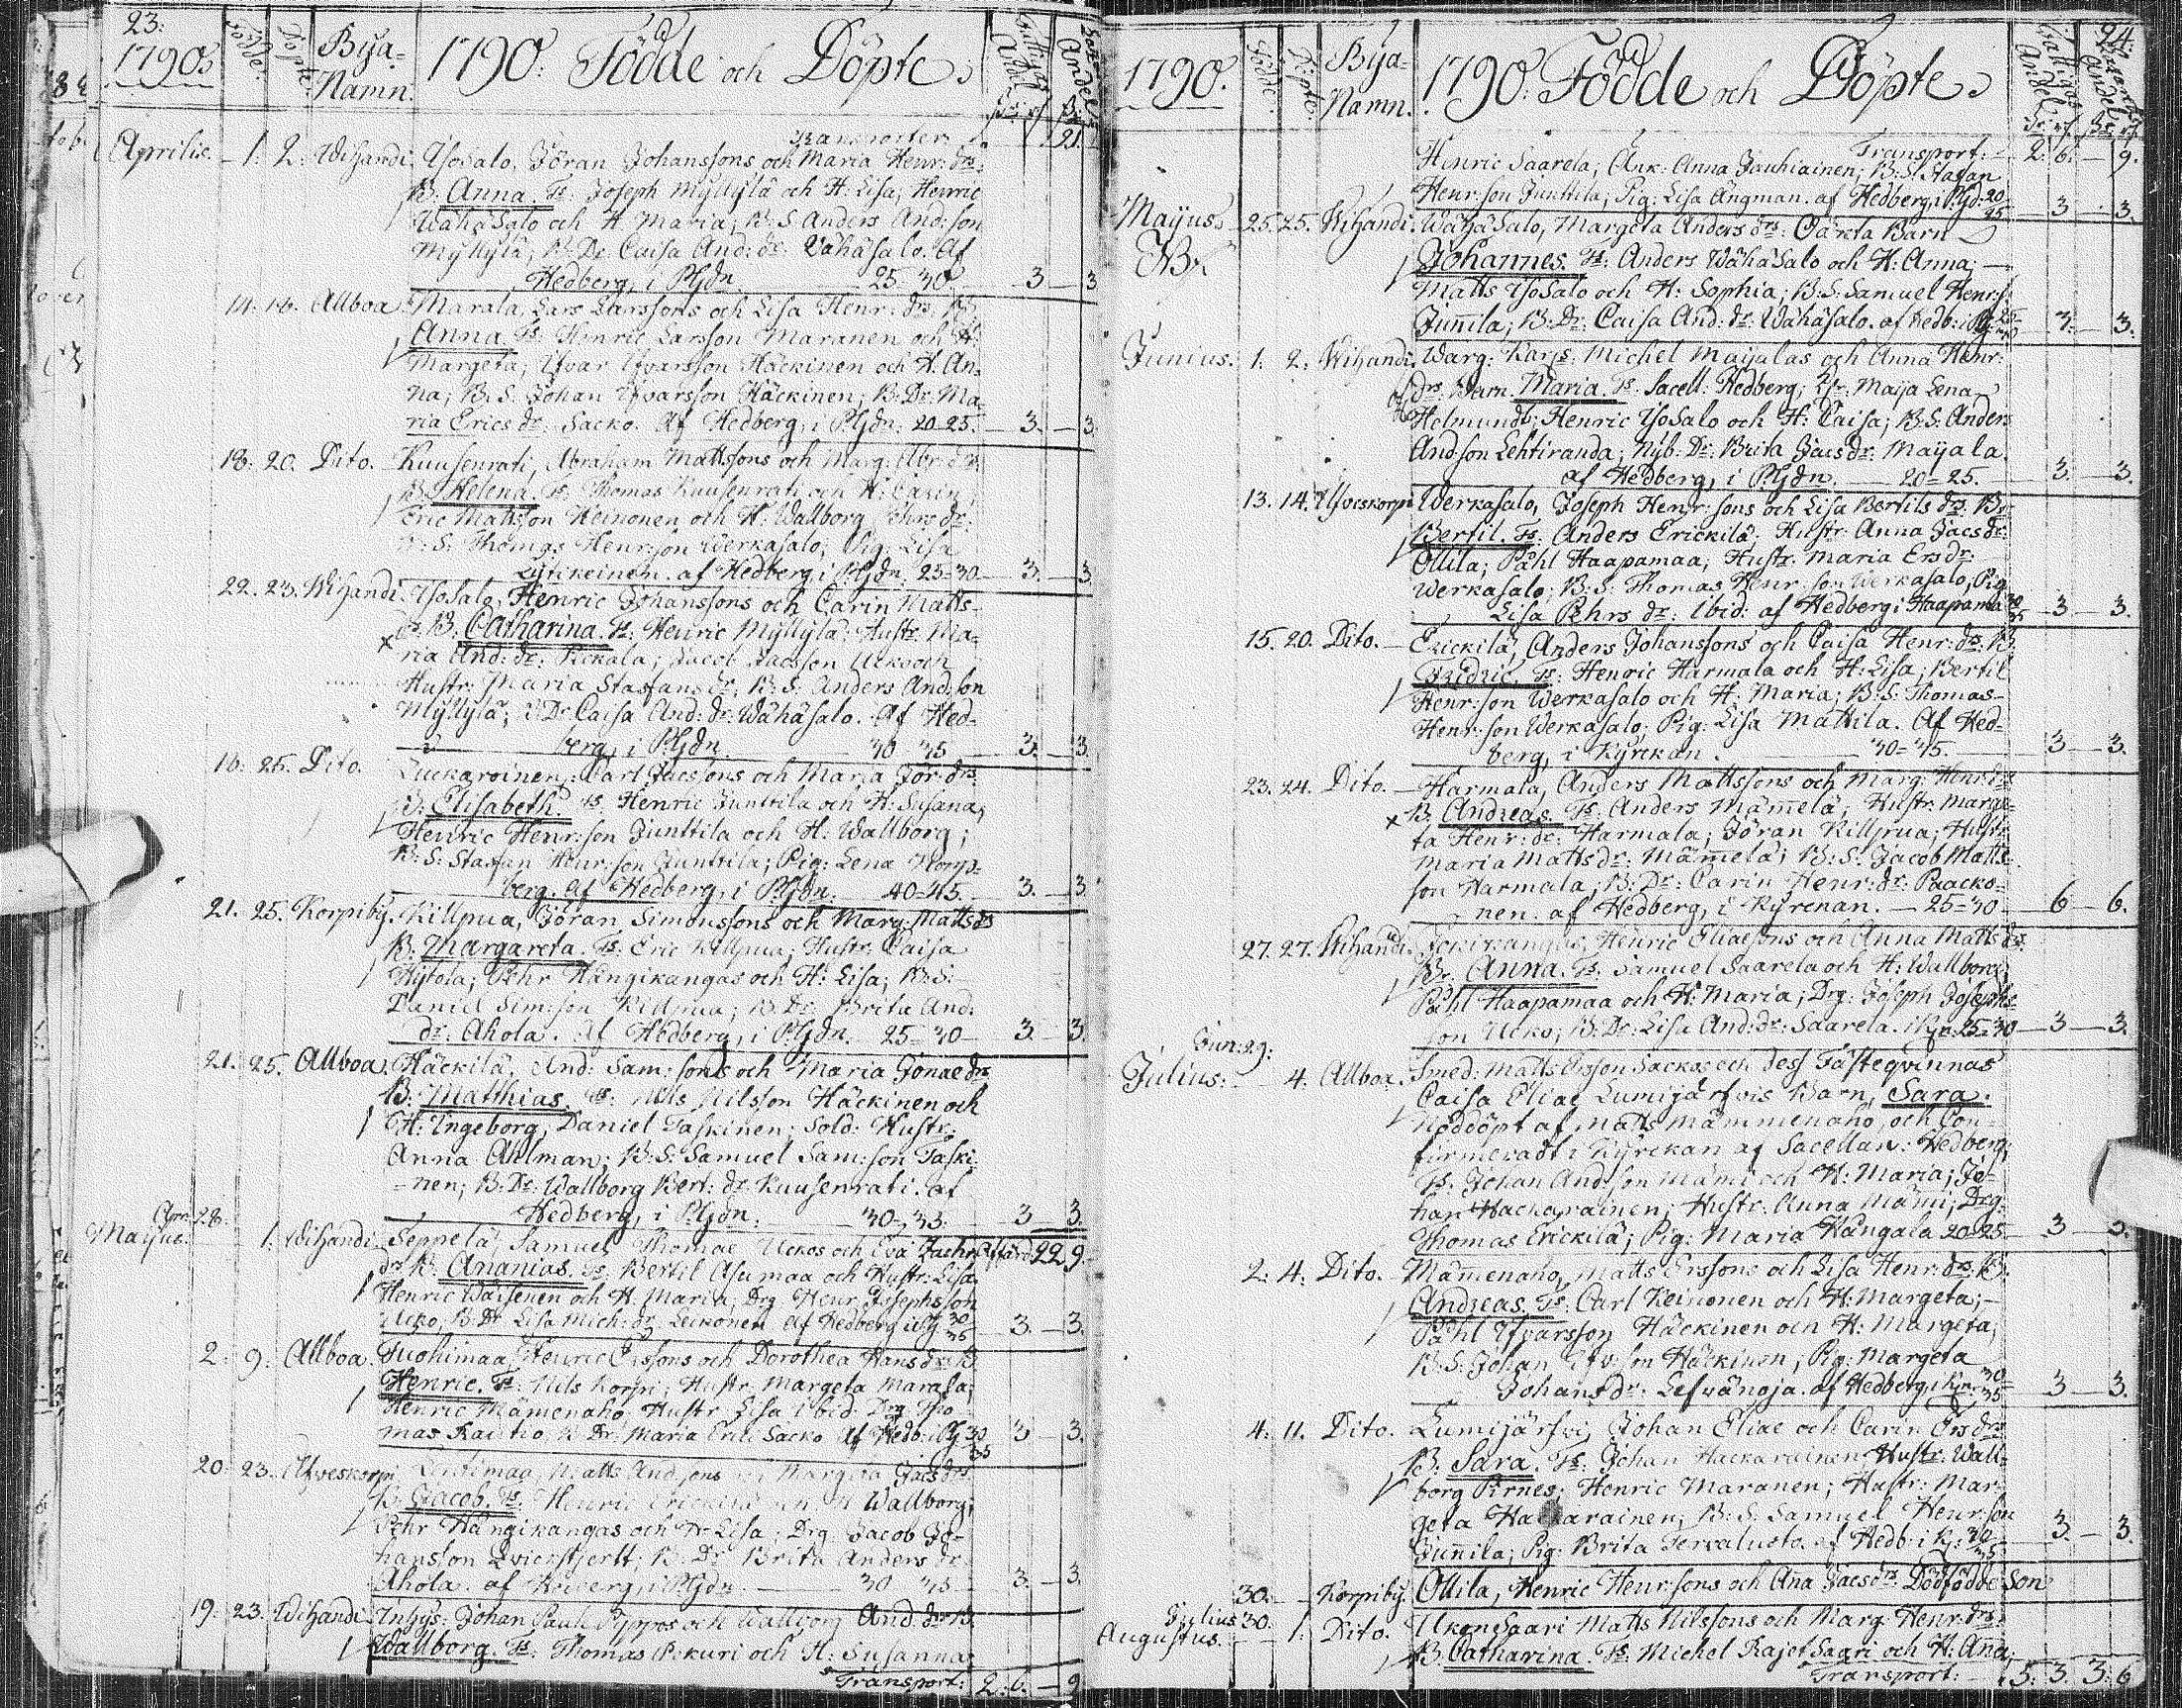 23:
1790:
Födde:
Döpte:
Bya-
Namn.
1790: Födde och Döpte.
Transporter: 21.
Aprilis. 1. 2. Wihandi. Ylosalo, Jöran Johanssons och Maria Henr: drs:
B: Anna. Ts: Joseph Myllylä och H: Lisa; Henric
Wähäsalo och H: Maria; B: S: Anders And: son
Myllylä; B: Dr: Caisa And: dr: Wähäsalo. Af
Hedberg, i P:gdn. 25-30. 3 3
14. 18. Allboa. Marala, Lars Larssons och Lisa Henr: drs: B:
Anna. Ts: Henric Larsson Maranen och H:
Margeta; Yfvar Yfvarsson Häckinen och H: An-
na; B: S: Johan Yfvarsson Häckinen; B: Dr: Ma-
ria Erics dr: Sacko. Af Hedberg, i P:gdn. 20-25. 3. 3.
18. 20. Dito. Kuusenrati, Abraham Mattssons och Marg: Abr: drs:
B: Helena. Ts: Thomas Kuusenrati och H: Carin;
Eric Matts:son Heinonen och H: Wallborg Pehrs dr:
B: S: Thomas Henr:son Werkasalo; Pig: Lisa
Lytikeinen. af Hedberg, i P:gdn. 25=30 3. 3
22. 23. Wihandi. Ylosalo, Henric Johanssons och Carin Matts-
dr: B: Catharina. Ts: Henric Myllylä: Hustr: Ma-
ria And: dr: Pickala; Jacob Jacsson Ucko och
Hustr: Maria Staffans dr: B: S: Anders And:son
Myllylä; B: Dr: Caisa And: dr: Wähäsalo. Af Hed-
berg, i P:gdn. 30 35 3. 3
16. 25. Dito. Luckaroinen, Carl Jacssons och Maria Jör: drs:
B: Elisabeth. Ts: Henric Junttila och H: Susana;
Henric Henr:son Junttila och H: Wallborg;
B: S: Staffan Henr:son Junttila; Pig: Lena Norp-
berg. af Hedberg, i P:gdn. 40=45. 3. 3
21. 25. Korpiby. Killpua, Jöran Simonssons och Marg: Matts drs
B: Margareta. Ts: Eric Killpua; Hustr: Caisa
Hytola; Pehr Hangikangas och H: Lisa; B: S:
Daniel Sim:son Killpua; B: Dr: Brita And:
dr: Ahola. Af Hedberg, i P:gdn. 25=30 3 3
21. 25. Allboa. Häckilä, And: Sam: sons och Maria Jonae drs
B: Matthias. Ts: Nils Nilsson Häckinen och
H: Ingeborg, Daniel Taskinen; Sold: Hustr:
Anna Ahlman; B: S: Samuel Sam:son Taski-
=nen; B: Dr: Wallborg Bert: dr: Kuusenrati. af
Hedberg, i P:gdn. 30-35. 3 3.
Apr: 28.
Maijus. 1. Wihandi. Seppelä, Samuel Thomae Uckos och Eva Zachr: 22 9
dr B: Ananias. Ts: Bertil Asumaa och Hustr: Lisa.
Henric Wäisenen och H: Maria; Drg Henr: Josephsson
Ucko, B: Dr: Lisa Mich: dr: Leikonen. Af Hedberg i P:g 30 35 3. 3.
2. 9. Allboa. Tuohimaa, Henric Erssons och Dorothea Hans dr: B.
Henric. Ts: Nils Korpi; Hustr: Margeta Marala;
Henric Mämenaho, Hustr: Lisa ibid. Drg Tho-
mas Rautio, B: Dr: Maria Erici Sacko. Af Hedb: i P:g 30 35 3 3.
20. 23. Ylfveskorpi. Lehtimaa, Matts And:sons och Margeta Jacs drs.
B: Jacob. Ts: Henric Erickilä och H: Wallborg;
Pehr Hangikangas och H: Lisa; Drg Jacob Jo-
hansson Qvierstjertt; B: Dr: Brita Anders dr:
Ahola. af Hedberg, i P:gdn. 30 35 3. 3.
19. 23. Wihandi. Inhys: Johan Pauli Pyppos och Wallborg And: drs: B.
Wallborg. Ts: Thomas Pekuri och H: Susanna;
Transport: 2. 6. 9
24.
1790.
Födde:
Döpte:
Bya-
Namn.
1790: Födde och Döpte.
Transport: 2. 6. 9.
Henric Saarela; Ank: Anna Jauhiainen; B: S: Staffan
Henr:son Junttila; Pig: Lisa Angman. af Hedberg, i P:gd: 20 25 3 3.
Maijus. 25. 25. Wihandi. Wähäsalo, Margeta Anders drs: Oäckta Barn
Johannes. Ts: Anders Wähäsalo och H: Anna;
Matts Ylosalo och H: Sophia; B: S: Samuel Henr:s:
Junnila; B: Dr: Caisa And: dr: Wähäsalo. af Hedb: i P:g: 3. 3.
Junius. 1. 2. Wihandi. Warg: Karjs: Michel Maijalas och Anna Henr:
drs: Barn. Maria. Ts: Sacell: Hedberg; Maija Lena
Helmundt; Henric Ylosalo och H: Caisa; B: S: Anders
And:son Lehtiranda; Nyb: Dr: Brita Jacs dr: Maijala.
af Hedberg, i P:gdn. 20=25. 3. 3.
13. 14. Ylfveskorpi. Werkasalo, Joseph Henr: sons och Lisa Bertils dr: B:
Bertil. Ts: Anders Erickilä; Hustr: Anna Jacs dr:
Ollila; Påhl Haapamaa; Hustr: Maria Ers dr:
Werkasalo; B: S: Thomas Henr:son Werkasalo, Pig
Lisa Pehrs dr: Ibid: af Hedberg i Haapamaa 30 35 3 3.
15. 20. Dito. Erickilä, Anders Johanssons och Caisa Henr: drs: B.
Fredric. Ts: Henric Harmala och H: Lisa; Bertil
Henr:son Werkasalo och H: Maria; B: S: Thomas
Henr:son Werkasalo; Pig: Lisa Mattila. Af Hed-
berg, i Kyrckan. 30=35. 3 3.
23. 24. Dito. Harmala, Anders Mattssons och Marg: Henr: drs
B: Andreas. Ts: Anders Mämelä; Hustr: Marge-
ta Henr: dr: Harmala; Jöran Killpua; Hustr:
Maria Matts dr: Mämelä; B: S: Jacob Matts-
son Harmala; B: Dr: Carin Henr: dr: Paacko=
nen. af Hedberg, i Kyrckan. 25=30 6 6.
27. 27. Wihandi. Henric Eliaessons och Anna Matts dr:
B: Anna. Ts: Samuel Saarela och H: Wallborg;
Påhl Haapamaa och H: Maria; Drg: Joseph Josephs-
son Ucko; B: Dr: Lisa And: dr: Saarela. i Kyr: 25=30 3 3.
Jun: 29:
Julius. 4. Allboa. Smed: Matts Ersson Sackos och dess Fästeqvinnas
Caisa Eliae Lumijärfvis Barn, Sara.
Nöddöpt af Matts Mämmenaho, och Con-
firmeradt i Kyrckan af Sacellan: Hedberg;
Ts: Johan And:son Mämi och H: Maria; Jo-
han Hackarainen; Hustr: Anna Mämi; Drg:
Thomas Erickilä; Pig: Maria Hangala 20=25 3 3.
2. 4. Dito. Mämenaho, Matts Erssons och Lisa Henr: drs: B.
Andreas. Ts: Carl Keinonen och H: Margeta;
Påhl Yfvarsson Häckinen och H: Margeta;
B: S: Johan Yfv:son Häckinen; Pig: Margeta
Johans dr: Lefvänoja. af Hedberg, i Kyr. 30 35 3 3.
4. 11. Dito. Lumijärfvi, Johan Eliae och Carin Ers drs
B: Sara. Ts: Johan Hackarainen; Hustr: Wall-
borg Pirnes; Henric Maranen; Hustr: Mar-
geta Hackarainen, B: S: Samuel Henr:son
Junnila; Pig: Brita Tervalusto. af Hedb: i K: 30 35 3. 3.
30. Korpiby. Ollila, Henric Henr:sons och Ana Jacs drs: Dödfödde Son
Julius 30.
Augustus. 1. Dito. UkonSaari Matts Nilssons och Marg: Henr: drs:
B: Catharina. Ts: Michel RajetSaari och H: Ana,
Transport: 5. 3. 3: 6